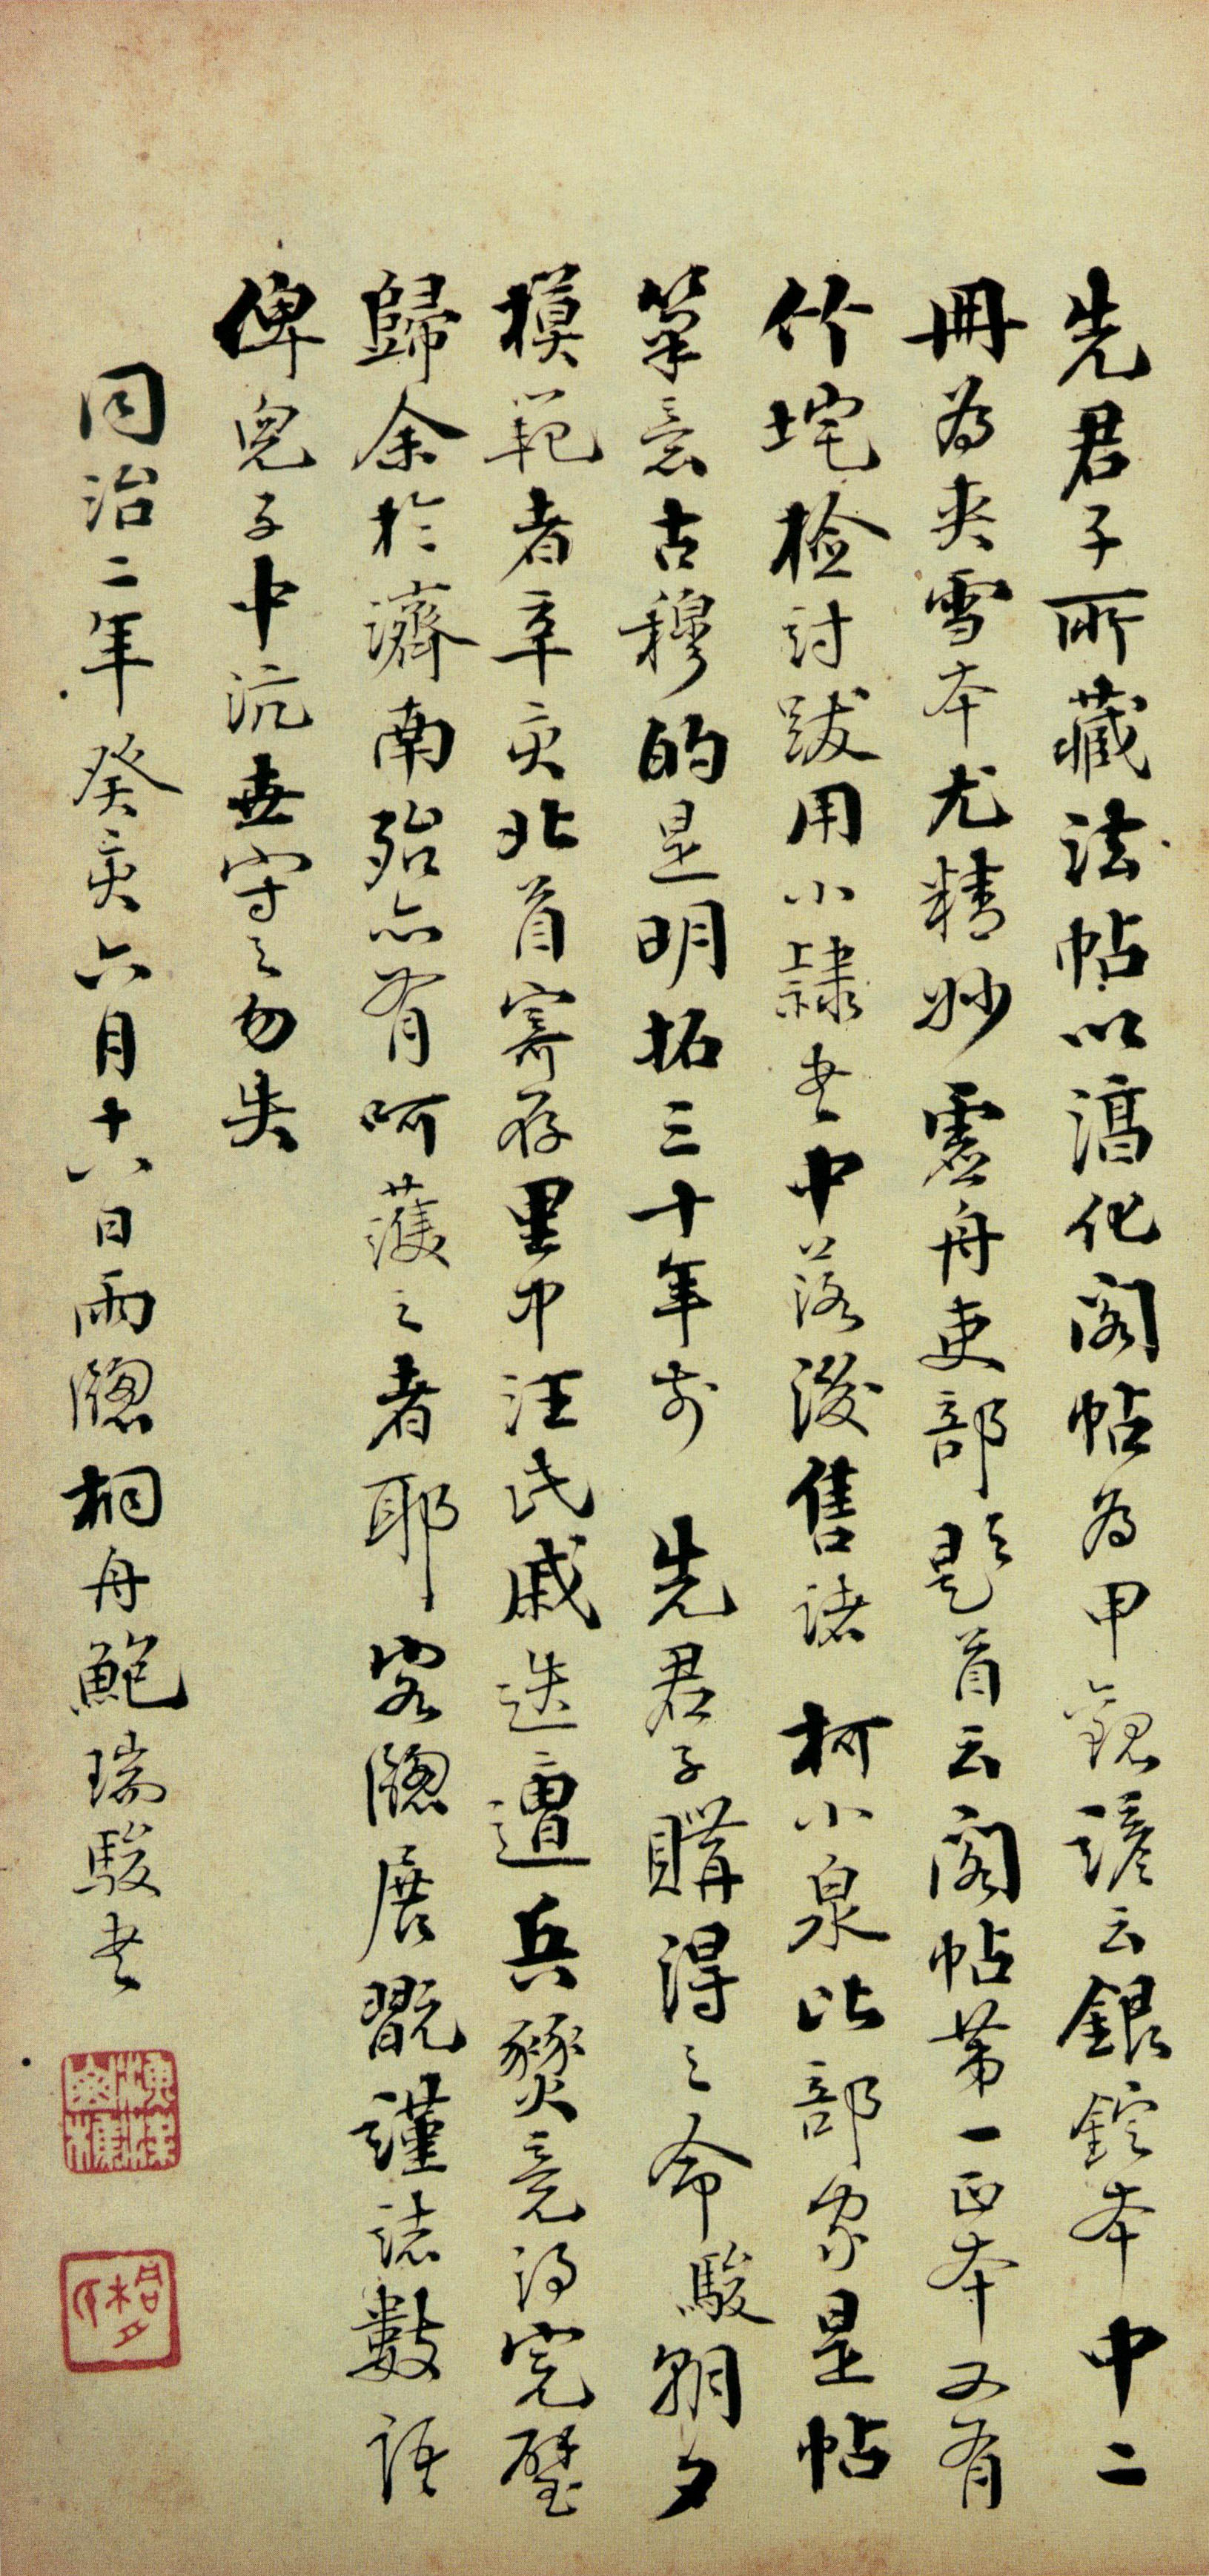 先君子所藏法帖以淳化閣帖為甲觀諺云銀錠本中二
冊為夾雪本尤精妙虛舟吏部題首云閣帖第一正本又有
竹垞檢討跋用小隸書中落後售諸 柯小泉比部家是帖
筆意古穆的是明拓三十年前 先君子購得之命駿朝夕
摸範者辛亥北首寄存里中汪氏戚迭遭兵燹竟得完璧
歸余於濟南殆亦有呵護之者耶 客牕展翫謹誌數語
俾兒子中沆世守之勿失
同治二年癸亥六月十六日雨牕桐舟鮑瑞駿書